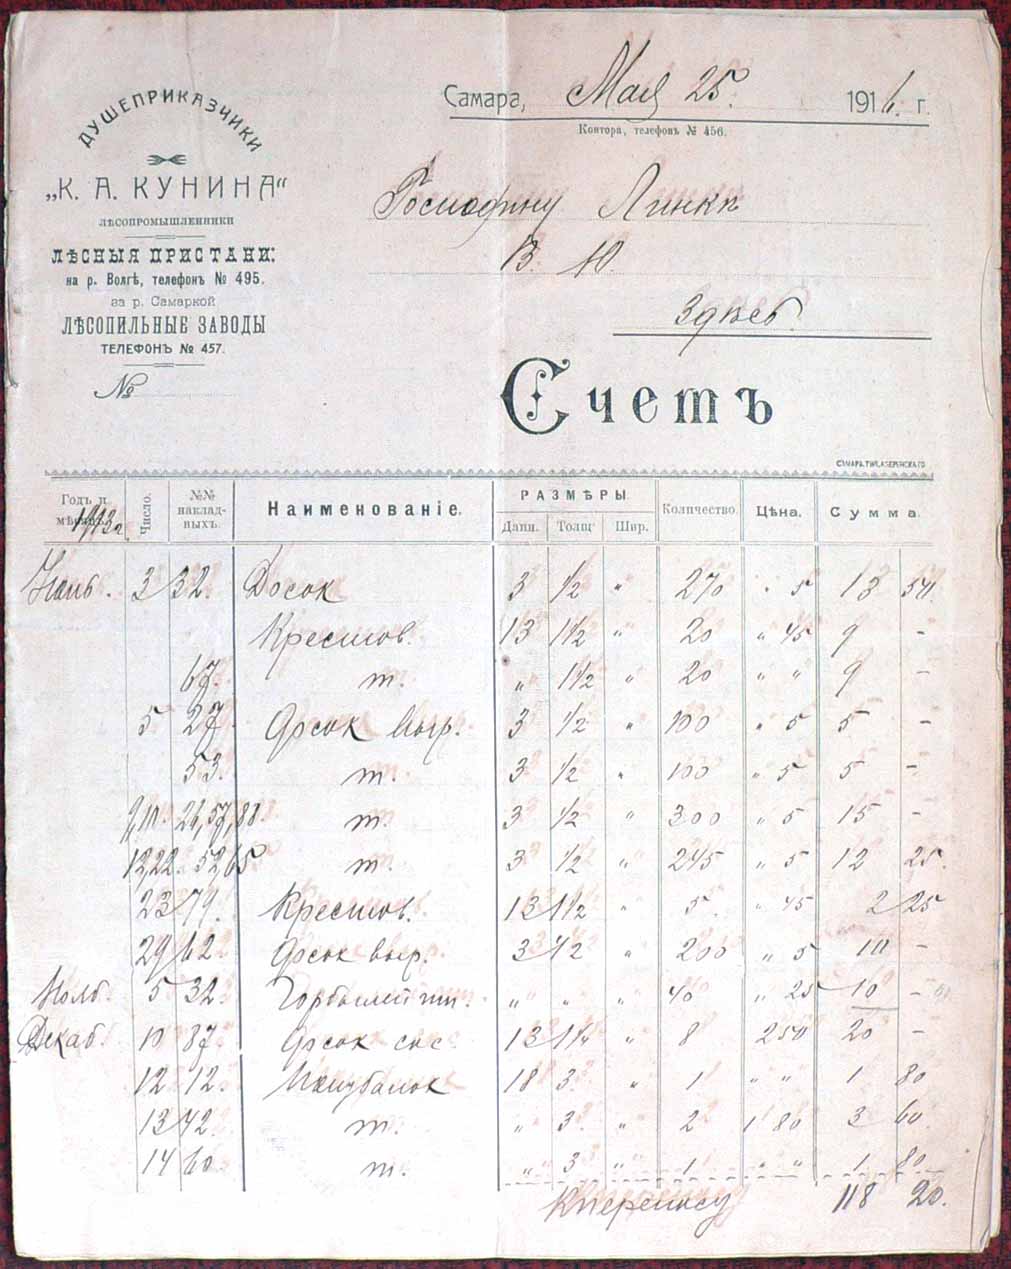 ДУШЕПРИКАЗЧИКИ
„К. А. КУНИНА“
ЛѢСОПРОМЫШЛЕННИКИ
ЛѢСНЫЯ ПРИСТАНИ:
на р. Волгѣ, телефонъ № 495.
за р. Самаркой
ЛѢСОПИЛЬНЫЕ ЗАВОДЫ
ТЕЛЕФОНЪ № 457.
№
Самара, Мая 25. 1916. г.
Контора, телефонъ № 456.
Господину Линке
В. Ю.
Здѣсь
Счетъ
САМАРА. ТИП. АЗЕРЕНСКАГО
Годъ и мѣсяцъ. Число. №№ накладныхъ. Наименованіе. РАЗМѢРЫ Количество. Цѣна. Сумма.
1913 г. Длин. Толщ. Шир.
3 32. Досок 3 1/2 " 270 " 5 13 50.
13 1 1/2 " 20 " 45 9 -
67. т. " 1 1/2 " 20 " " 9 -
5 27. Досок 3 1/2 " 100 " 5 5 -
53. т. 3 1/2 " 100 " 5 5 -
9, 10. 26, 57, 88. т. 3 1/2 " 300 " 5 15 -
13, 22. 52, 65 т. 3 1/2 " 245 " 5 12 25.
23 79. 13 1 1/2 " 5. " 45 2 25
29 62. Досок 3 1/2 " 200 " 5 10 -
Нояб. 5 32. Горбылей " " " 40 " 25 10 -
Декаб. 10 87. Досок сос. 13 1 1/4 " 8 2 50 20 -
12 12. 18 3 " 1 " " 1 80
13 42. т. " 3 " 2 1 80 3 60.
14 60. т. " 3 " 1 " " 1 80
К переносу 118 20.